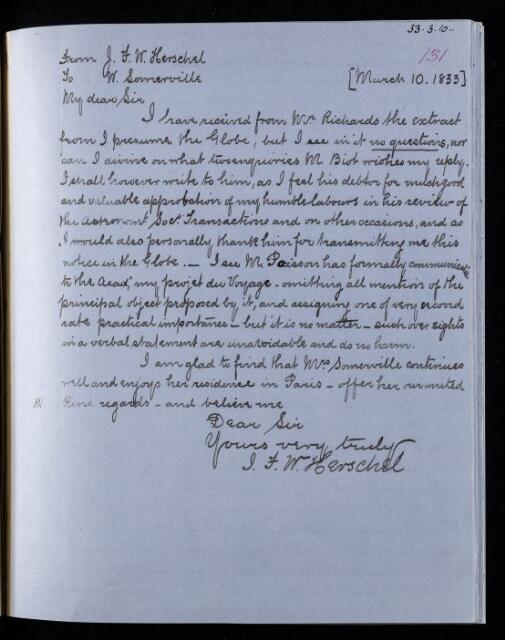 33.3.10.
131
From J. F. W. Herschel
To W. Somerville [March 10. 1833]
My dear Sir
I have received from Mr Richards the extract
from I presume the Globe, but I see in it no questions, nor
can I divine on what two enquiries M. Biot wishes my reply.
I shall however write to him, as I feel his debtor for much good
and valuable approbation of my humble labours in his review of
the Astronoml Socy Transactions and on other occasions, and as
I would also personally thank him for transmitting me this
notice in the Globe. — I see M. Poisson has formally communicated
to the Acady my projet du Voyage - omitting all mention of the
principal object proposed by it, and assigning one of very second
rate practical importance - but it is no matter - such over sights
in a verbal statement are unavoidable and do no harm.
I am glad to find that Mrs Somerville continues
well and enjoys her residence in Paris - offer her our united
kind regards - and believe me
Dear Sir
Yours very truly
J. F. W. Herschel